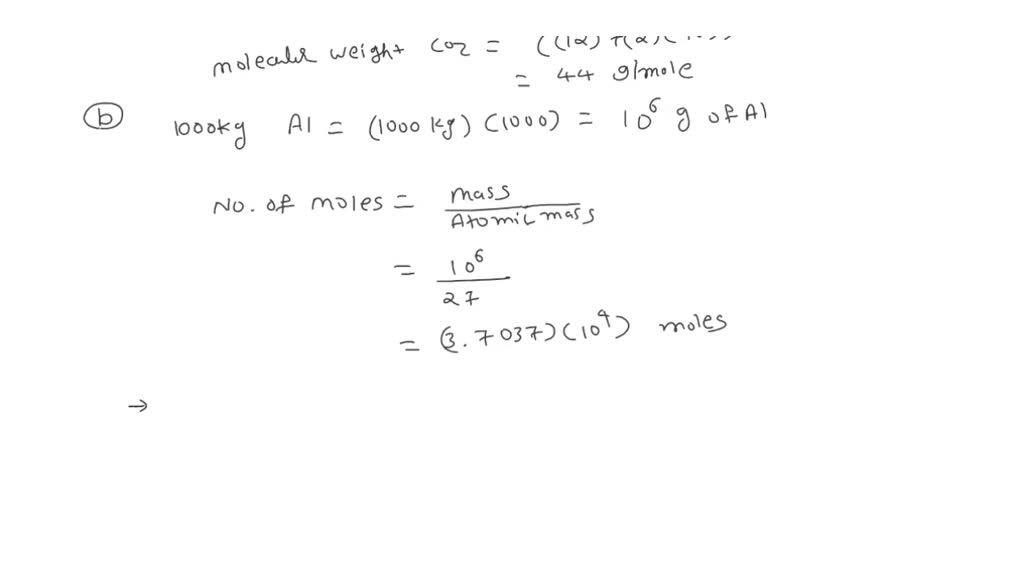 molecular weight CO2 = ((12) + (2)(
= 44 g/mole
(b) 1000kg Al = (1000 kg) (1000) = 10^6 g of Al
No. of moles = mass / Atomic mass
= 10^6 / 27
= (3.7037)(10^4) moles
→